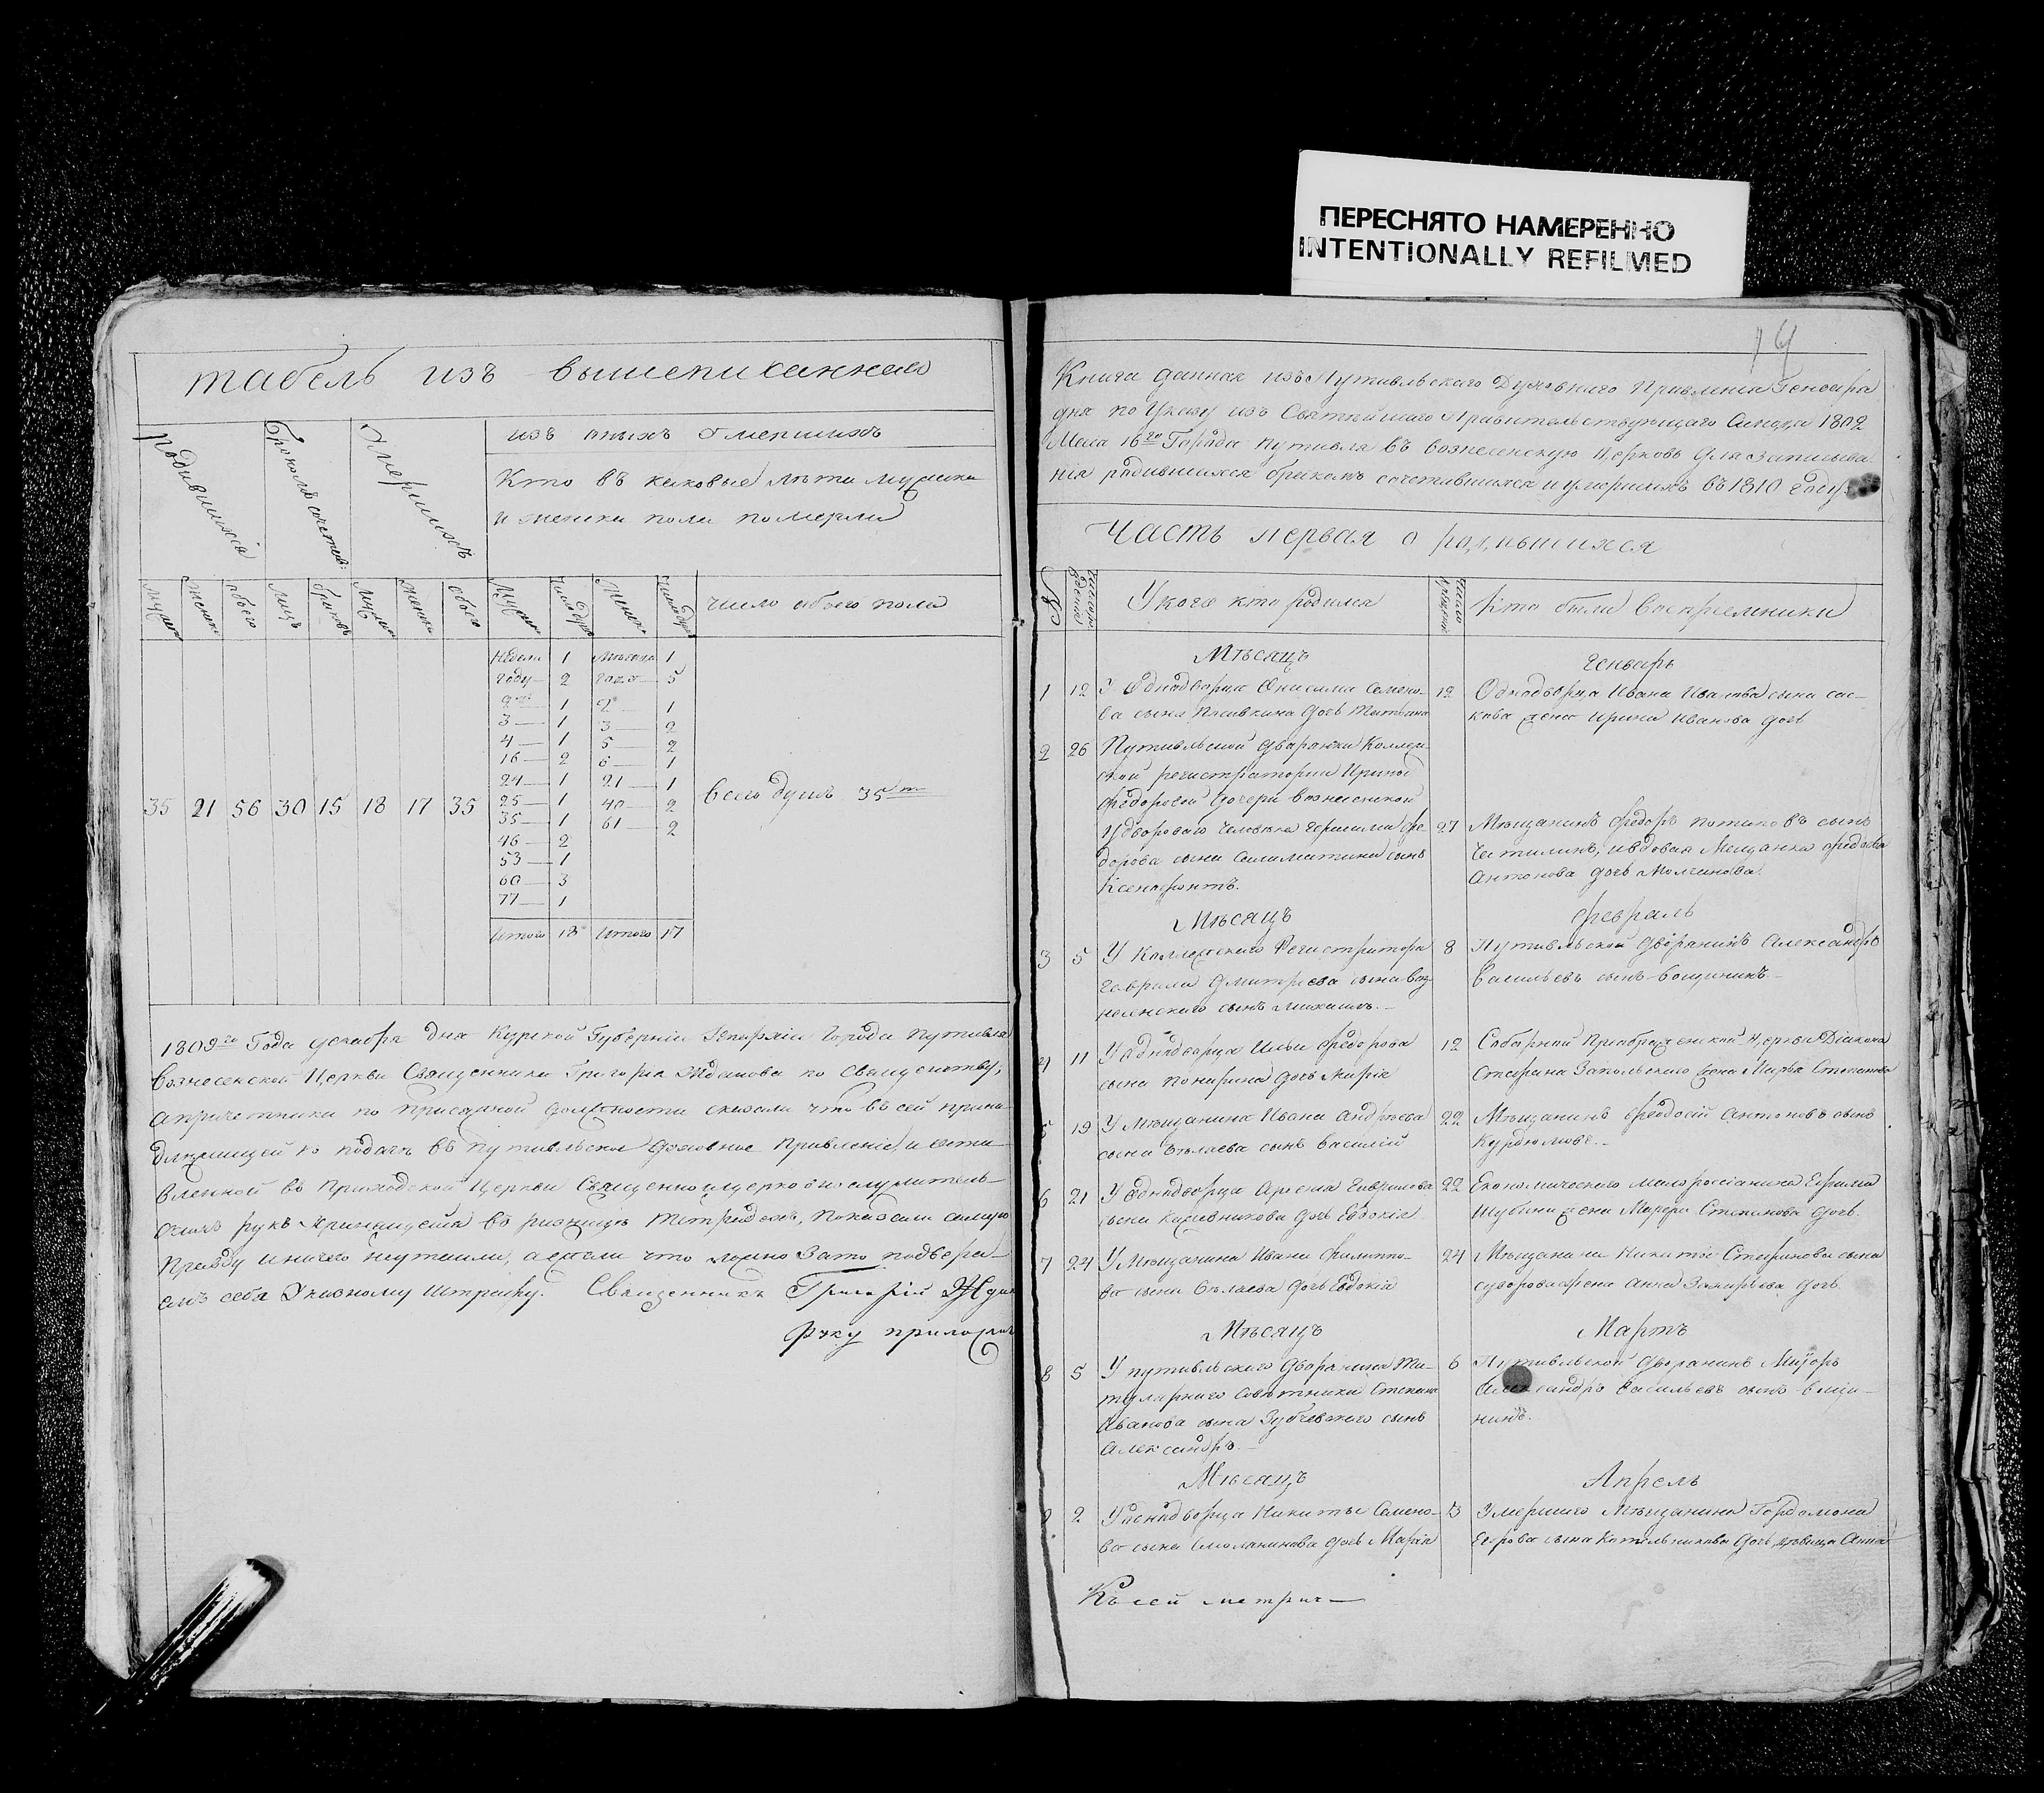 ПЕРЕСНЯТО НАМЕРЕННО
INTENTIONALLY REFILMED
табель изъ вышеписаннаго
родившихся
бракомъ сочетав:
Умершихъ
изъ оныхъ Умершихъ
Кто въ каковые лѣта мужска
и женска пола померли
мужес
женск
обоего
лицъ
браковъ
мужес
женск
обоего
Мужес
число душъ
Женск
число душъ
число обоего пола
Недели 1 1
Году 2 Года 5
2 1 2 1
3 1 3 2
4 1 5 2
16 2 6 1
24 1 21 1
25 1 40 2
35 1 61 2
46 2
53 1
60 3
77 1
35 21 56 30 15 18 17 35
всего душъ 35ть
Итого 18 Итого 17
1809го Года декабря дня Курской Губерніи Епархіи Города Путивля
Вознесенской Церкви Священника Григорія Жданова по священству,
а причетники по присяжной должности сказали что въ сей прина
длежащей къ подачѣ въ Путивльское духовное Правленіе, и оста
вленной въ Приходской Церкви Священно и церковнослужитель
скихъ рукъ въ ризницѣ тетрадехъ, показали самую
Правду и ничего неутаили, а ежели что ложно Зато подверга
емъ себя Указному Штрафу. Священникъ Григорій Ждан
Руку приложилъ
19
Книга данная изъ Путивльского Духовного Правленія Генваря
дня по Указу изъ Святейшаго Правительствующаго Синода 1802
Маia 16го Города Путивля въ вознесенскую Церковь для Записыва
нія родившихся бракомъ сочетавшихся и умершихъ въ 1810 Году
Часть первая о родившихся
№
число рожденія
У кого кто родился
число крещенія
Кто были восприемники
Мѣсяцъ Генварь
1 12 У Однодворца Онисима Семено-
ва сына дочь Татиана
12 Однодворца Ивана Иванова сына сас-
кова жена Ирина Иванова дочь
2 26 Путивльской дворянки Коллеж
ской регистраторши Ирины
Федоровой дочери вознесенской
У двороваго человека Герасима Фе
дорова сына Саламатина сынъ
Ксенофонтъ.
27 Мѣщанинъ Федоръ Потаповъ сынъ
и вдовая Мещанка Федосья
Антонова дочь Молчанова.
Мѣсяцъ февраль
3 5 У Коллежского Регистратора
Гаврила Дмитриева сына Воз
несенского сынъ Михаилъ.
8 Путивльской дворянинъ Александръ
Васильевъ сынъ Вощининъ.
4 11 У Однодворца Ильи Федорова
сына дочь Марія
12 Соборной Преображенской Церкви Діакона
Стефана Запольского жена Марья Степанова
5 19 У Мѣщанина Ивана Андреева
сына Бѣлаева сынъ Василій
22 Мѣщанинъ Феодосій Антоновъ сынъ
Курдюмовъ.
6 21 У Однодворца Гаврилова
сына дочь Евдокія
22 Економического малороссіанина Ефима
Шубина жена Марфа Степанова дочь.
7 24 У Мѣщанина Ивана Филиппо-
ва сына Бѣлаева дочь Евдокія
24 Мѣщанина Никиты Стефанова сына
суворова жена Анна Захарьева дочь.
Мѣсяцъ Мартъ
8 5 У путивльского дворянина Ти-
тулярнаго Советника Степана
Иванова сына Зубчевского сынъ
Александръ.
6 Путивльской дворянинъ Маіоръ
Александръ Васильевъ сынъ Вощи-
нинъ.
Мѣсяцъ Апрель
9 2 У Однодворца Никиты Семено-
ва сына Смольянинова дочь Марія
3 Умершаго Мѣщанина
Егорова сына Котельникова дочь девица Анна
Къ сей метрич